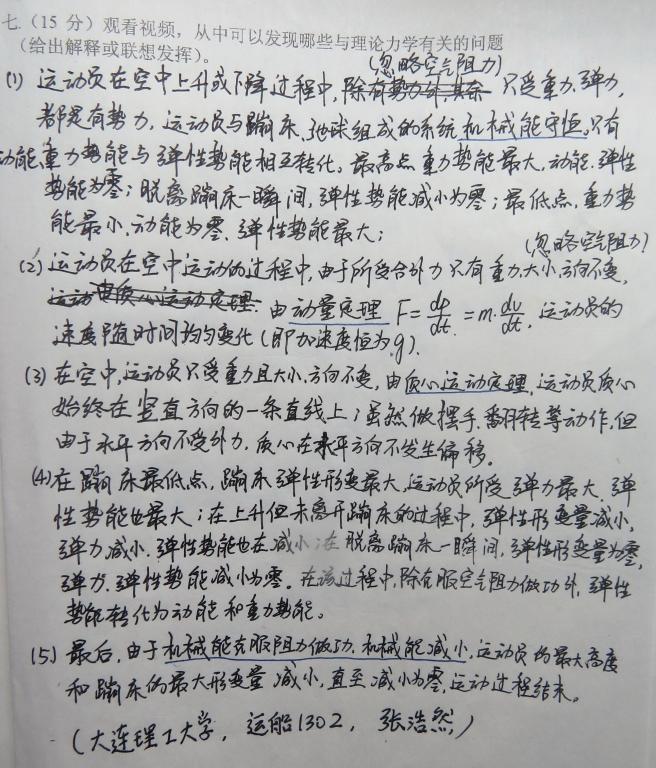 七.(15 分)观看视频，从中可以发现哪些与理论力学有关的问题
(给出解释或联想发挥)。
(忽略空气阻力)
(1) 运动员在空中上升或下降过程中,除有势力外,其余 只受重力,弹力,
都是有势力,运动员与蹦床、地球组成的系统机械能守恒。只有
动能,重力势能与弹性势能相互转化。最高点重力势能最大,动能.弹性
势能为零;脱离蹦床一瞬间,弹性势能减小为零;最低点,重力势
能最小,动能为零、弹性势能最大;
(忽略空气阻力)
(2) 运动员在空中运动的过程中,由于所受合外力只有重力,大小,方向不变,
运动 质心运动定理. 由动量定理 F=dp/dt=m·dv/dt, 运动员的
速度随时间均匀变化(即加速度恒为g).
(3) 在空中,运动员只受重力且大小,方向不变,由质心运动定理,运动员质心
始终在竖直方向的一条直线上;虽然做摆手,翻转等动作,但
由于水平方向不受外力,质心在水平方向不发生偏移。
(4)在蹦床最低点,蹦床弹性形变最大,运动员所受弹力最大、弹
性势能也最大;在上升但未离开蹦床的过程中,弹性形变量减小,
弹力减小.弹性势能也在减小;在脱离蹦床一瞬间,弹性形变量为零,
弹力.弹性势能减小为零。在该过程中,除克服空气阻力做功外,弹性
势能转化为动能和重力势能。
(5) 最后,由于机械能克服阻力做功,机械能减小,运动员的最大高度
和蹦床的最大形变量减小,直至减小为零,运动过程结束。
(大连理工大学, 运船1302, 张浩然)